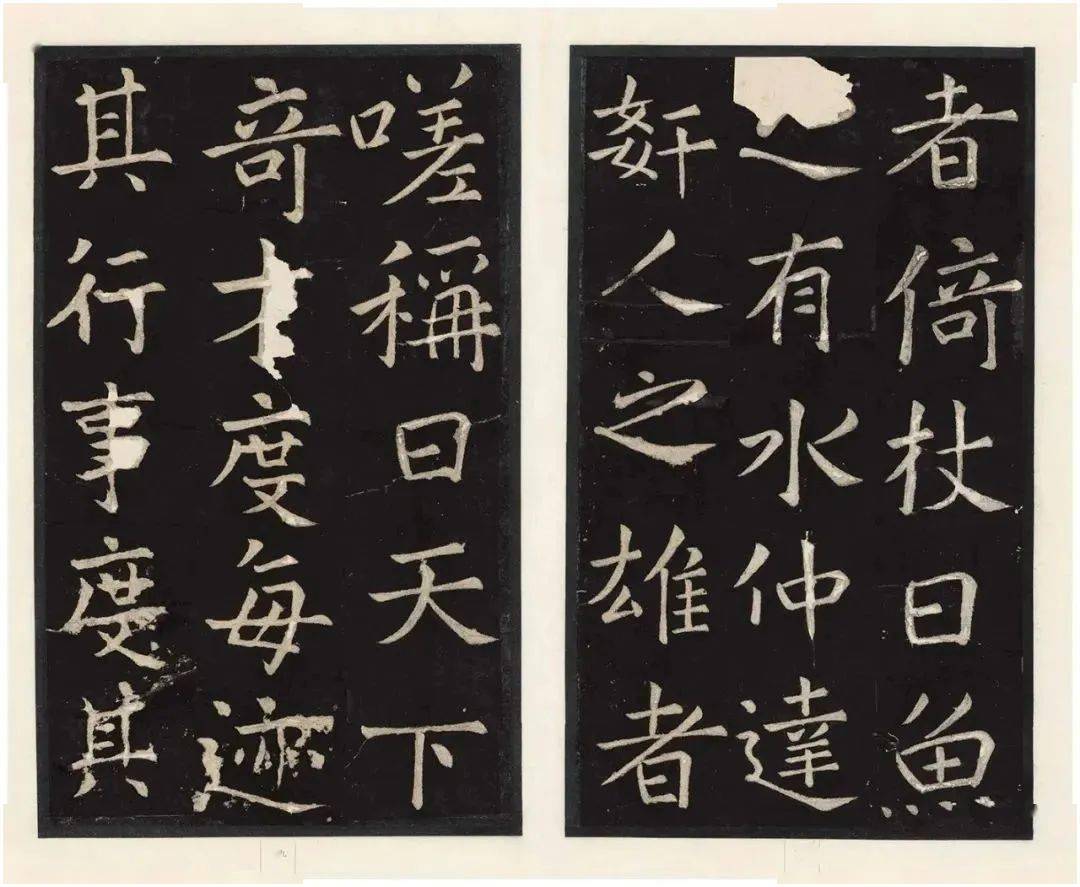 者倚杖曰魚
有水仲達
姧人之雄者
嗟稱曰天下
奇才度每迹
其行事度其